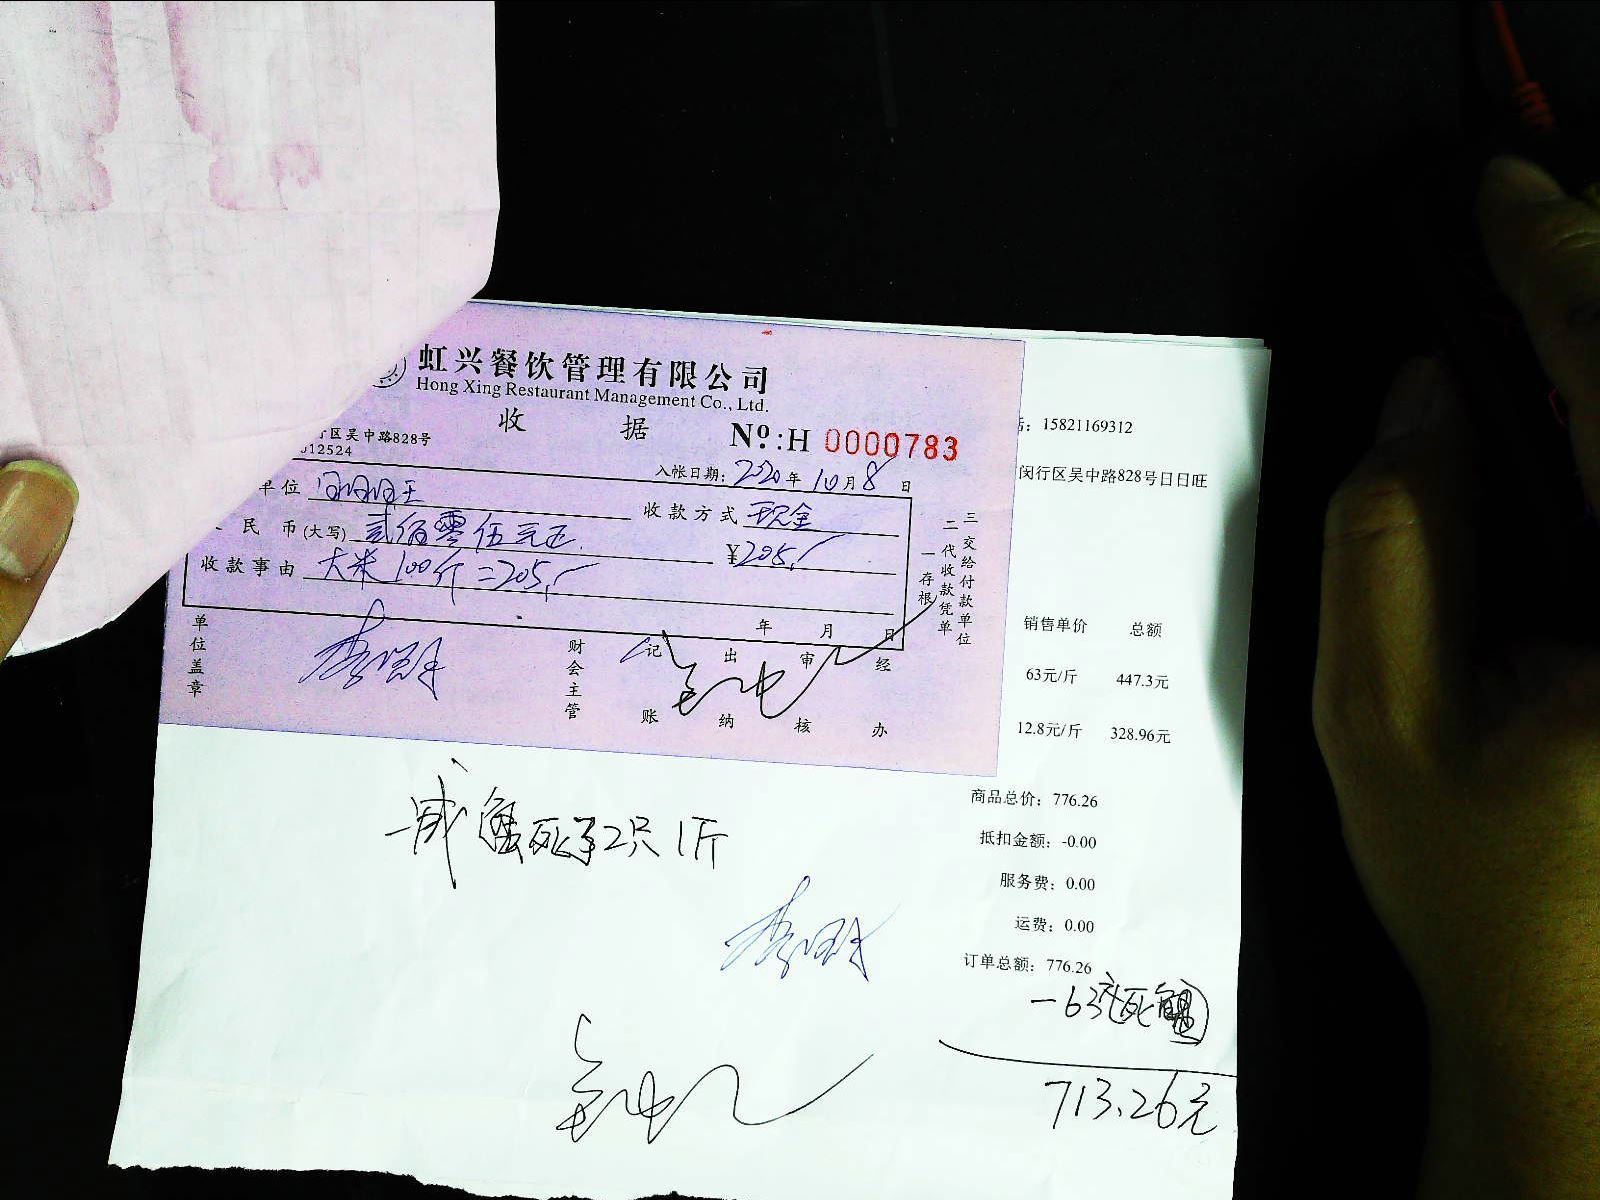 虹兴餐饮管理有限公司
Hong Xing Restaurant Management Co., Ltd.
收 据
Nº:H 0000783
区吴中路828号
012524
入帐日期: 2020年10月8日
单位 日日旺
收款方式 现金
民 币(大写) 贰佰零伍元正
¥205.-
收款事由 大米100斤=205.-
年 月 日
一存根
二代收款凭单
三交给付款单位
单位盖章
财会主管
记账
出纳
审核
经办
：15821169312
闵行区吴中路828号日日旺
销售单价 总额
63元/斤 447.3元
12.8元/斤 328.96元
商品总价：776.26
抵扣金额：-0.00
服务费：0.00
运费：0.00
订单总额：776.26
蟹死了2只1斤
-63
713.26元